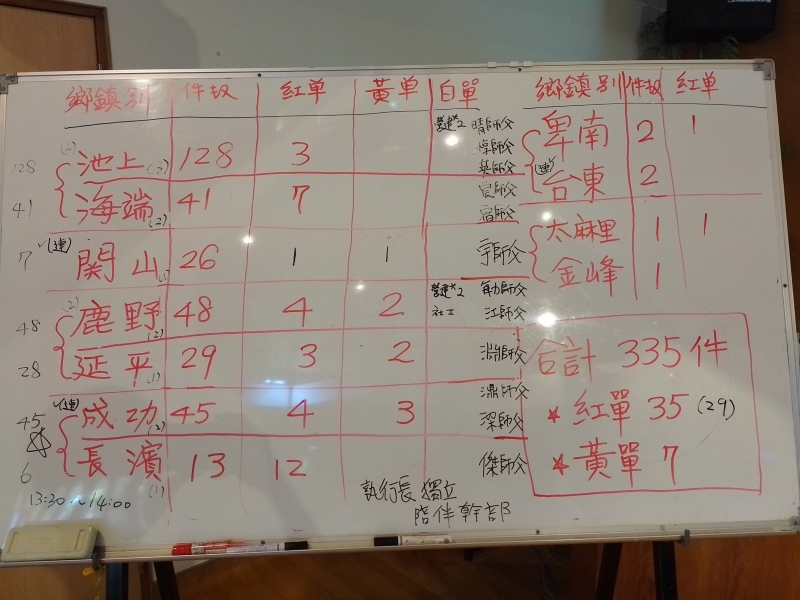 鄉鎮別 件数 紅单 黃单 白單
128 (2) 池上 (3) 128 3 營建*2 晴師父
41 海端 (2) 41 7
7 ✓(連) 関山 26 1 1 宇師父
48 (2) 鹿野 (2) 48 4 2 營建*2
社工 江師父
28 延平 (1) 29 3 2
45 ✓(連) 成功 (2) 45 4 3 深師父
6 長濱 (1) 13 12 傑師父
13:30~14:00
執行長 獨立
陪伴幹部
鄉鎮別 件数 紅单
卑南 2 1
(連) 台東 2
太麻里 1 1
金峰 1
合計 335件
* 紅單 35 (29)
* 黃單 7